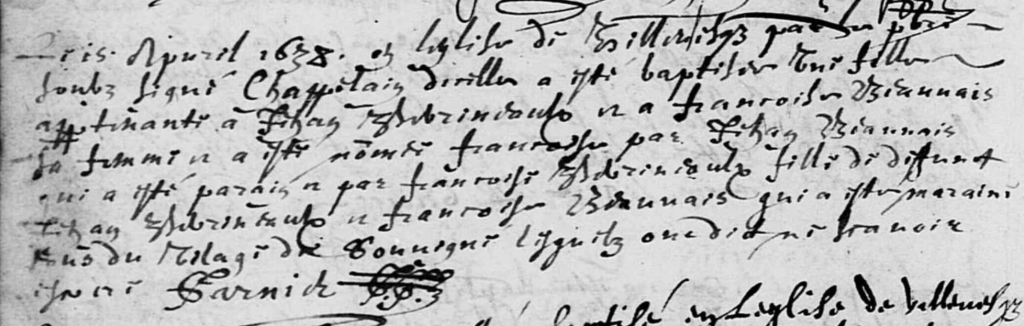 Le 15 Apvril 1638. en leglise de Villevesq par moy pbre
soubz signé Chappelain dicelle a esté baptisée une fille
apptenante à Jehan et a francoise Viannais
sa femme et a esté nomée francoise par Jehan Viannais
qui a esté parain et par francoise fille de deffunct
Jehan et francoise Viannais qui a esté maraine
tous du village de Souvigné lesquelz ont dict ne scavoir
escrire Garnier
baptisé en leglise de villevesq